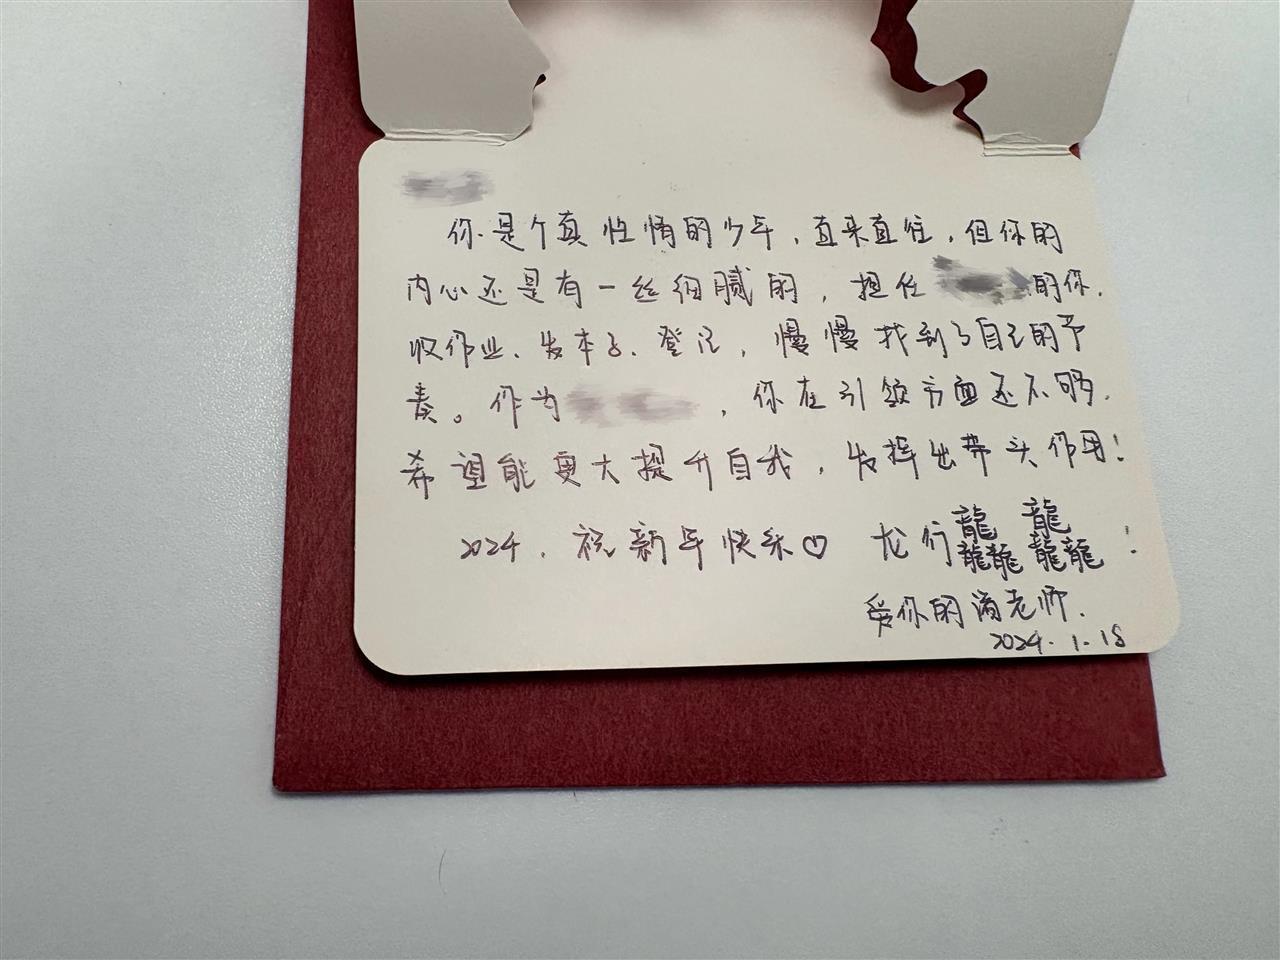 你是个真性情的少年，直来直往，但你的
内心还是有一丝细腻的，担任的你，
收作业、发本子、登记，慢慢找到了自己的节
奏。作为，你在引领方面还不够，
希望能更大提升自我，发挥出带头作用！
2024，祝新年快乐♡ 龙行龘龘！
爱你的潘老师.
2024.1.18